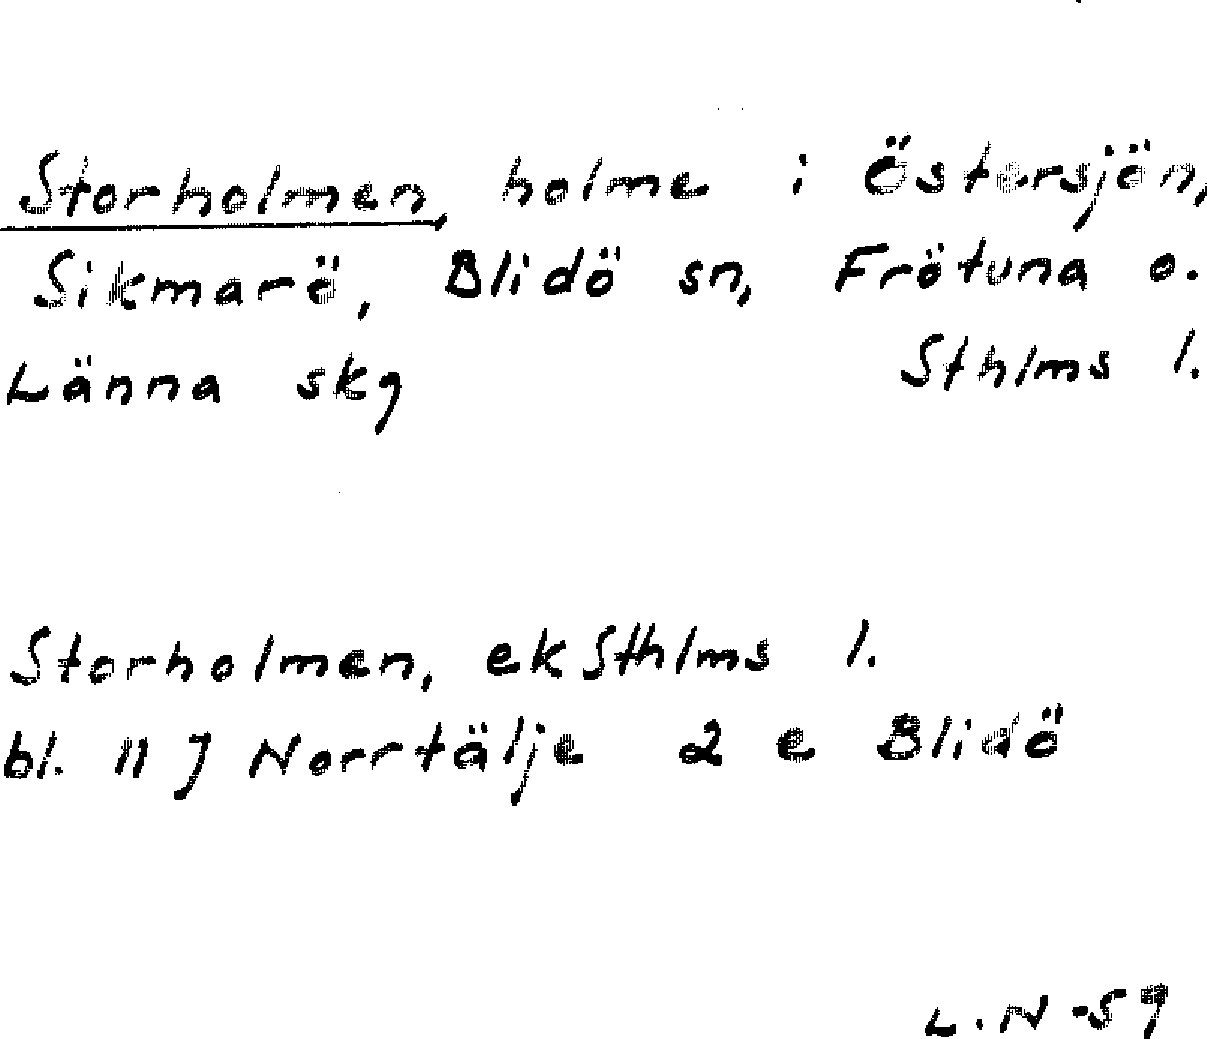 Storholmen, holme i Östersjön,
Sikmarö, Blidö sn, Frötuna o.
Länna skg Sthlms l.
Storholmen, ek Sthlms l.
bl. 11 J Norrtälje 2 e Blidö
L.N -59